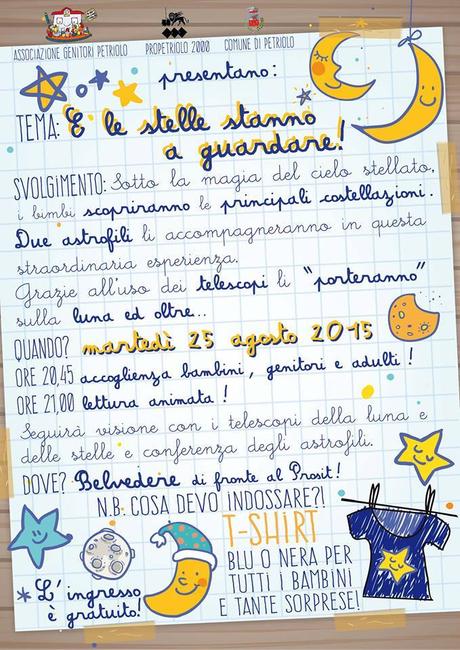 ASSOCIAZIONE GENITORI PETRIOLO PROPETRIOLO 2000 COMUNE DI PETRIOLO
presentano:
TEMA: E le stelle stanno
a guardare!
SVOLGIMENTO: Sotto la magia del cielo stellato,
i bimbi scopriranno le principali costellazioni.
Due astrofili li accompagneranno in questa
straordinaria esperienza.
Grazie all'uso dei telescopi li "porteranno"
sulla luna ed oltre...
QUANDO? martedì 25 agosto 2015
ORE 20,45 accoglienza bambini, genitori e adulti!
ORE 21,00 lettura animata!
Seguirà visione con i telescopi della luna e
delle stelle e conferenza degli astrofili.
DOVE? Belvedere di fronte al Prosit!
N.B. COSA DEVO INDOSSARE?!
T-SHIRT
BLU O NERA PER
TUTTI I BAMBINI
E TANTE SORPRESE!
* L'ingresso
è gratuito!